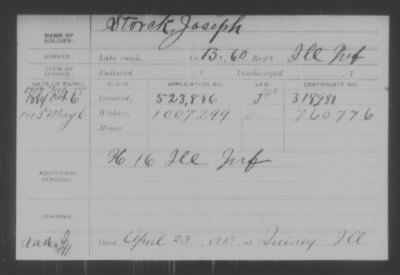 NAME OF SOLDIER: Storck, Joseph
SERVICE: Late rank, Co. B. 60 Reg't Ill Inf
TERM OF SERVICE: Enlisted , 1 Discharged , 1
DATE OF FILING. CLASS. APPLICATION NO. LAW. CERTIFICATE NO.
1884 Oct 6 Invalid, 523,886 318981
1913 May 6 Widow, 1007299 760776
Minor,
ADDITIONAL SERVICES: H 16 Ill Inf
REMARKS:
Died April 23, 1913, at Quincy Ill